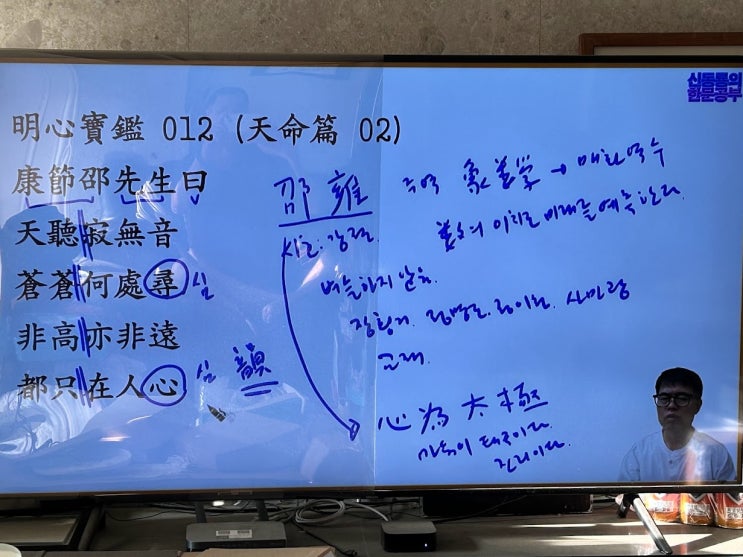 신동률의
한문공부
明心寶鑑 012 (天命篇 02)
康節邵先生曰
天聽寂無音
蒼蒼何處尋 심
非高亦非遠
都只在人心 심 韻
邵雍
시호: 강절.
벼슬하지 않음.
교제.
주역 象數學 → 매화역수
이치로 미래를 예측한다.
心為太極
마음이 태극이다.
진리이다.